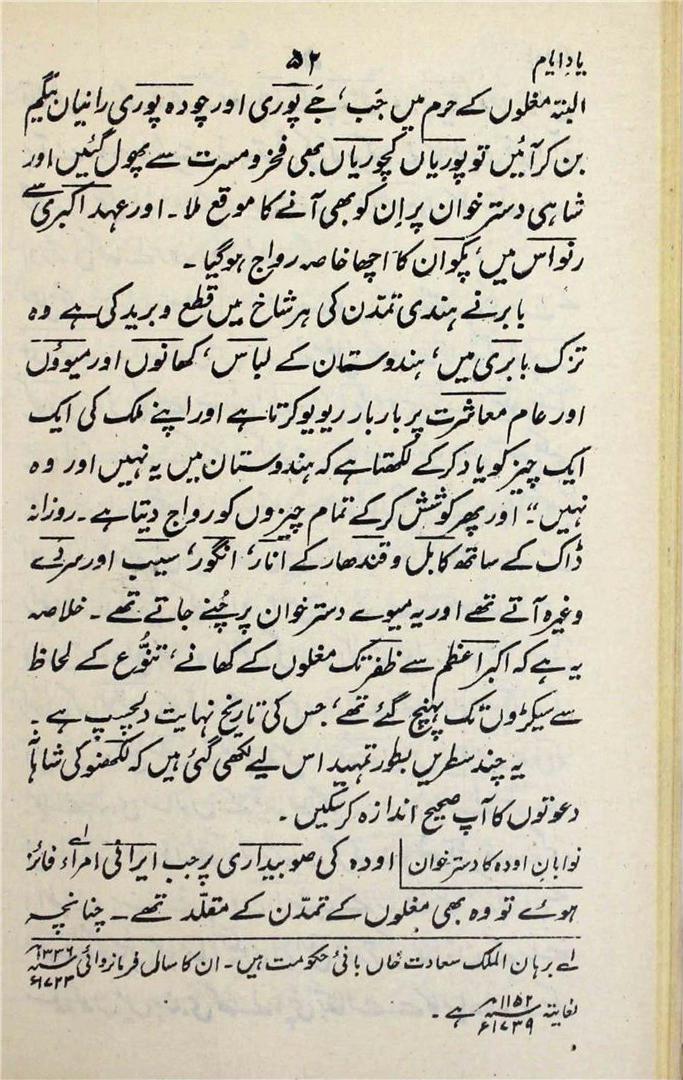 یادِ ایام ۵۲
البتہ مغلوں کے حرم میں جَب، جَے پوری اور جودہ پوری رانیان بیگم
بن کر آئیں تو پوریاں کچوریاں بھی فخر و مسرت سے پھول گئیں اور
شاہی دسترخوان پر اِن کو بھی آنے کا موقع ملا۔ اور عہد اکبری سے
رنواس میں، پکوان کا اچھا خاصہ رواج ہوگیا۔
بابر نے ہندی تمدّن کی ہر شاخ میں قطع و برید کی ہے وہ
تزک بابری میں، ہندوستان کے لباس، کھانوں اور میوؤں
اور عام معاشرت پر بار بار ریویو کرتا ہے اور اپنے ملک کی ایک
ایک چیز کو یاد کرکے لکھتا ہے کہ ہندوستان میں یہ نہیں اور وہ
نہیں" اور پھر کوشش کرکے تمام چیزوں کو رواج دیتا ہے۔ روزانہ
ڈاک کے ساتھ کابل و قندھار کے انار، انگور، سیب اور سردے
وغیرہ آتے تھے اور یہ میوے دسترخوان پر چُنے جاتے تھے۔ خلاصہ
یہ ہے کہ اکبر اعظم سے ظفر تک مغلوں کے کھانے، تنوُّع کے لحاظ
سے سیکڑوں تک پہنچ گئے تھے، جس کی تاریخ نہایت دلچسپ ہے۔
یہ چند سطریں بطور تمہید اس لیے لکھی گئی ہیں کہ لکھنؤ کی شاہانہ
دعوتوں کا آپ صحیح اندازہ کرسکیں۔
نوابانِ اودہ کا دسترخوان اودہ کی صوبیداری پر جب ایرانی امراء لے فائز
ہوئے تو وہ بھی مغلوں کے تمدّن کے مقلّد تھے۔ چنانچہ
لے برہان الملک سعادت خاں بانیٔ حکومت ہیں۔ ان کا سال فرمانروائی ۱۳۳۶ھ ۱۷۲۳ء
لغایتہ ۱۱۵۲ھ ۱۷۳۹ء ہے۔